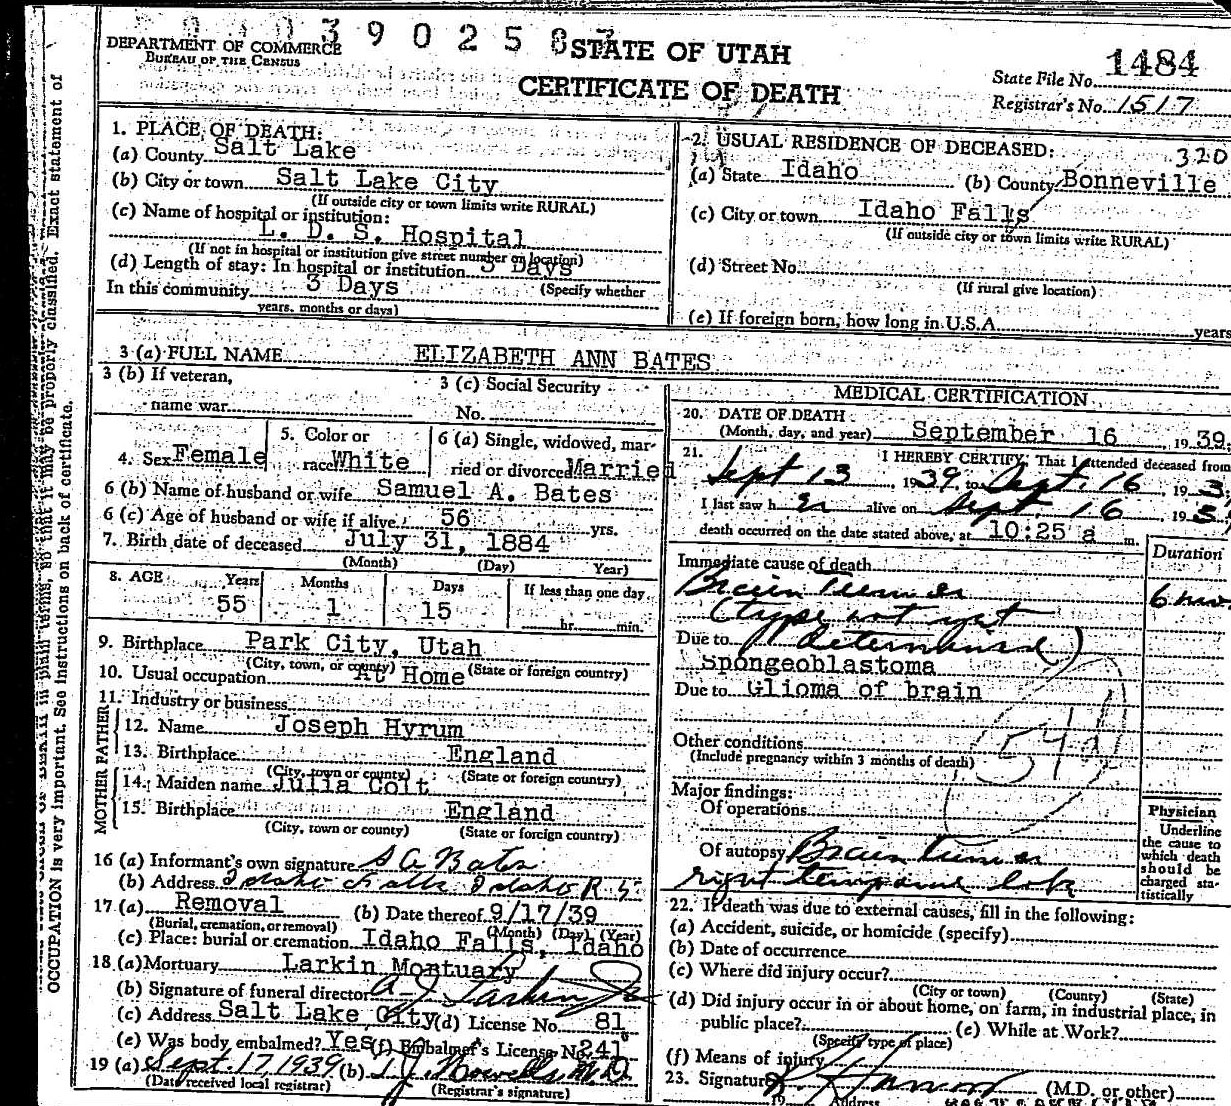 0 0 0 3 9 0 2 5 8
DEPARTMENT OF COMMERCE
BUREAU OF THE CENSUS
STATE OF UTAH
CERTIFICATE OF DEATH
State File No. 1484
Registrar's No. 1517
1. PLACE OF DEATH:
(a) County Salt Lake
(b) City or town Salt Lake City
(If outside city or town limits write RURAL)
(c) Name of hospital or institution:
L. D. S. Hospital
(If not in hospital or institution give street number or location)
(d) Length of stay: In hospital or institution 3 Days
In this community 3 Days (Specify whether
years, months or days)
2. USUAL RESIDENCE OF DECEASED: 320
(a) State Idaho (b) County Bonneville
(c) City or town Idaho Falls
(If outside city or town limits write RURAL)
(d) Street No.
(If rural give location)
(e) If foreign born, how long in U.S.A. years
3 (a) FULL NAME ELIZABETH ANN BATES
3 (b) If veteran,
name war
3 (c) Social Security
No.
4. Sex Female
5. Color or
race White
6 (a) Single, widowed, mar-
ried or divorced Married
6 (b) Name of husband or wife Samuel A. Bates
6 (c) Age of husband or wife if alive 56 yrs.
7. Birth date of deceased July 31, 1884
(Month) (Day) Year)
8. AGE Years Months Days If less than one day
55 1 15 hr. min.
9. Birthplace Park City, Utah
(City, town, or county) (State or foreign country)
10. Usual occupation At Home
11. Industry or business
FATHER
12. Name Joseph Hyrum
13. Birthplace England
(City, town or county) (State or foreign country)
MOTHER
14. Maiden name Julia Colt
15. Birthplace England
(City, town or county) (State or foreign country)
16 (a) Informant's own signature S A Bates
(b) Address Idaho Falls Idaho R 5
17 (a) Removal (b) Date thereof 9/17/39
(Burial, cremation, or removal) (Month) (Day) (Year)
(c) Place: burial or cremation Idaho Falls, Idaho
18 (a) Mortuary Larkin Mortuary
(b) Signature of funeral director A J Larkin Jr
(c) Address Salt Lake City (d) License No. 81
(e) Was body embalmed? Yes (f) Embalmer's License No. 241
19 (a) Sept. 17, 1939 (b) M.D.
(Date received local registrar) (Registrar's signature)
MEDICAL CERTIFICATION
20. DATE OF DEATH
(Month, day, and year) September 16, 1939.
21. I HEREBY CERTIFY, That I attended deceased from
Sept 13, 1939, to Sept. 16, 193
I last saw her alive on Sept. 16, 193
death occurred on the date stated above, at 10:25 a m.
Immediate cause of death Duration
Brain Tumor 6 mo
(type not yet
Due to determined)
Spongeoblastoma
Due to Glioma of brain
54d
Other conditions
(Include pregnancy within 3 months of death)
Major findings:
Of operations
Of autopsy Brain tumor
right temporal lobe
Physician
Underline
the cause to
which death
should be
charged sta-
tistically
22. If death was due to external causes, fill in the following:
(a) Accident, suicide, or homicide (specify)
(b) Date of occurrence
(c) Where did injury occur?
(City or town) (County) (State)
(d) Did injury occur in or about home, on farm, in industrial place, in
public place? (e) While at Work?
(Specify type of place)
(f) Means of injury
23. Signature (M.D. or other)
19 Address
OCCUPATION is very important. See instructions on back of certificate.
so that it may be properly classified. Exact statement of